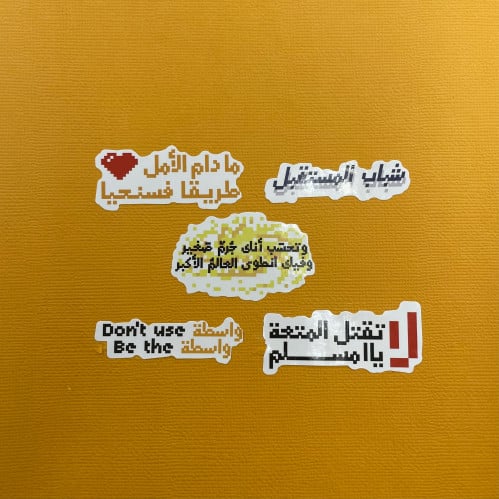 ما دام الأمل
طريقا فسنحيا
شباب المستقبل
وتحسب أنك جُرمٌ صَغير
وفيك انطوى العالمُ الأكبر
Don't use واسطة
Be the واسطة
لا تقتل المتعة
يا مسلم